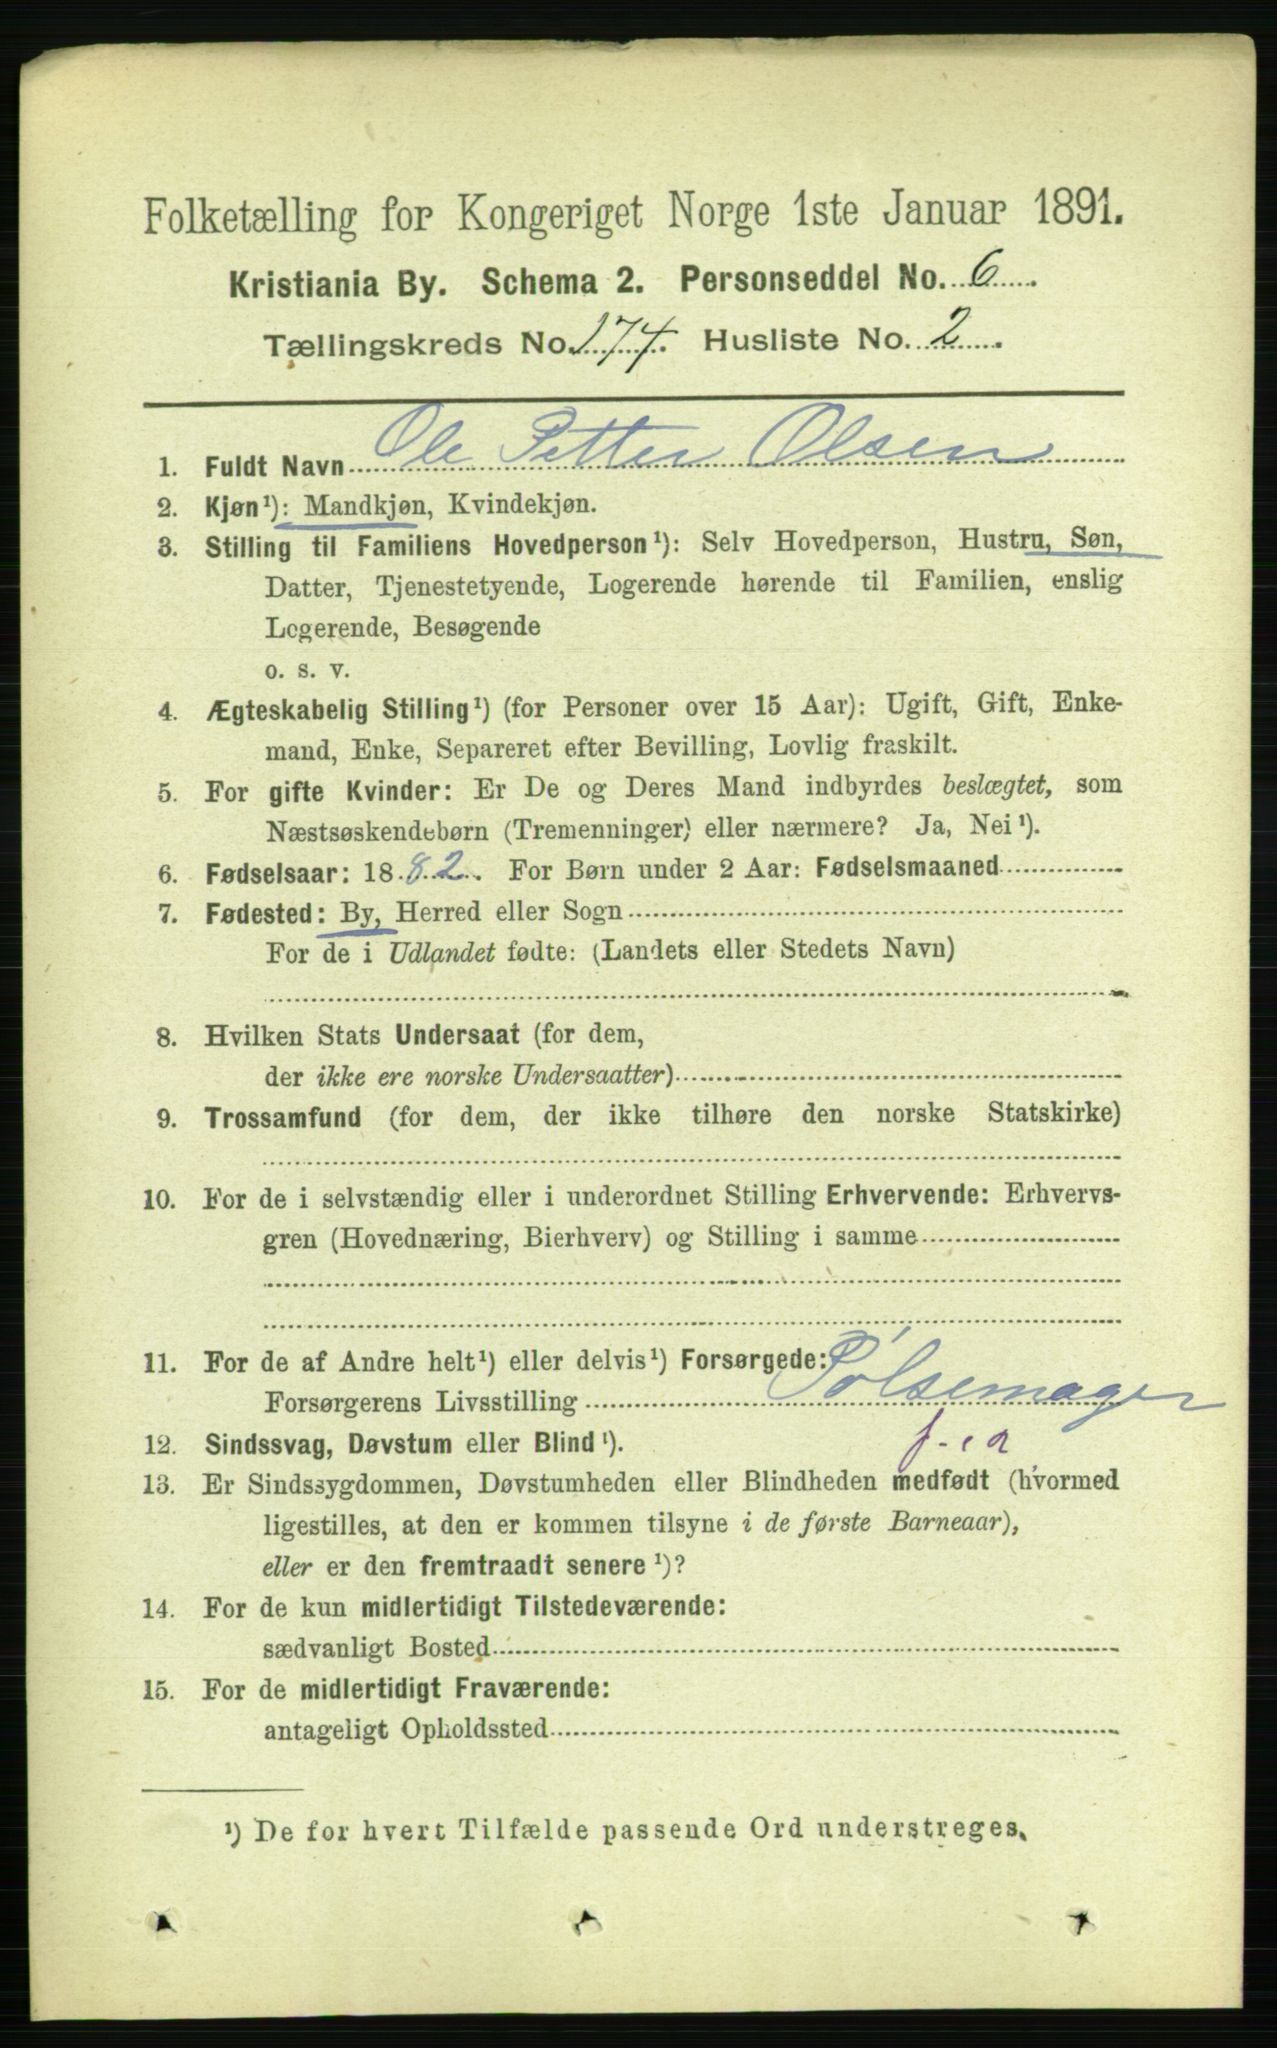 Folketælling for Kongeriget Norge 1ste Januar 1891.
Kristiania By. Schema 2. Personseddel No. 6
Tællingskreds No. 174. Husliste No. 2.
1. Fuldt Navn Ole Petter Olsen
2. Kjøn¹): Mandkjøn, Kvindekjøn.
3. Stilling til Familiens Hovedperson¹): Selv Hovedperson, Hustru, Søn,
Datter, Tjenestetyende, Logerende hørende til Familien, enslig
Logerende, Besøgende
o. s. v.
4. Ægteskabelig Stilling¹) (for Personer over 15 Aar): Ugift, Gift, Enke-
mand, Enke, Separeret efter Bevilling, Lovlig fraskilt.
5. For gifte Kvinder: Er De og Deres Mand indbyrdes beslægtet, som
Næstsøskendebørn (Tremenninger) eller nærmere? Ja, Nei¹).
6. Fødselsaar: 1882. For Børn under 2 Aar: Fødselsmaaned
7. Fødested: By, Herred eller Sogn
For de i Udlandet fødte: (Landets eller Stedets Navn)
8. Hvilken Stats Undersaat (for dem,
der ikke ere norske Undersaatter)
9. Trossamfund (for dem, der ikke tilhøre den norske Statskirke)
10. For de i selvstændig eller i underordnet Stilling Erhvervende: Erhvervs-
gren (Hovednæring, Bierhverv) og Stilling i samme
11. For de af Andre helt¹) eller delvis¹) Forsørgede:
Forsørgerens Livsstilling Pølsemager
12. Sindssvag, Døvstum eller Blind¹).
13. Er Sindssygdommen, Døvstumheden eller Blindheden medfødt (hvormed
ligestilles, at den er kommen tilsyne i de første Barneaar),
eller er den fremtraadt senere¹)?
14. For de kun midlertidigt Tilstedeværende:
sædvanligt Bosted
15. For de midlertidigt Fraværende:
antageligt Opholdssted
¹) De for hvert Tilfælde passende Ord understreges.